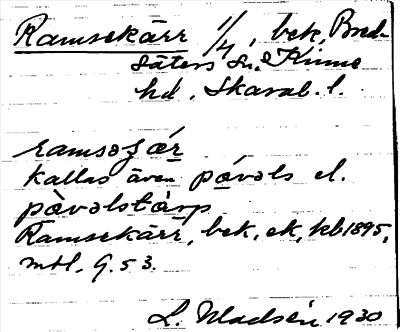 Ramsekärr 1/4, bek, Bred-
säters sn, Kinne
hd, Skarab. l.
ramsəʒær
kallas även påvəls el.
påvəlstårp
Ramsekärr, bek, ek, kb 1895,
mtl. G. 53.
L. Madsén 1930